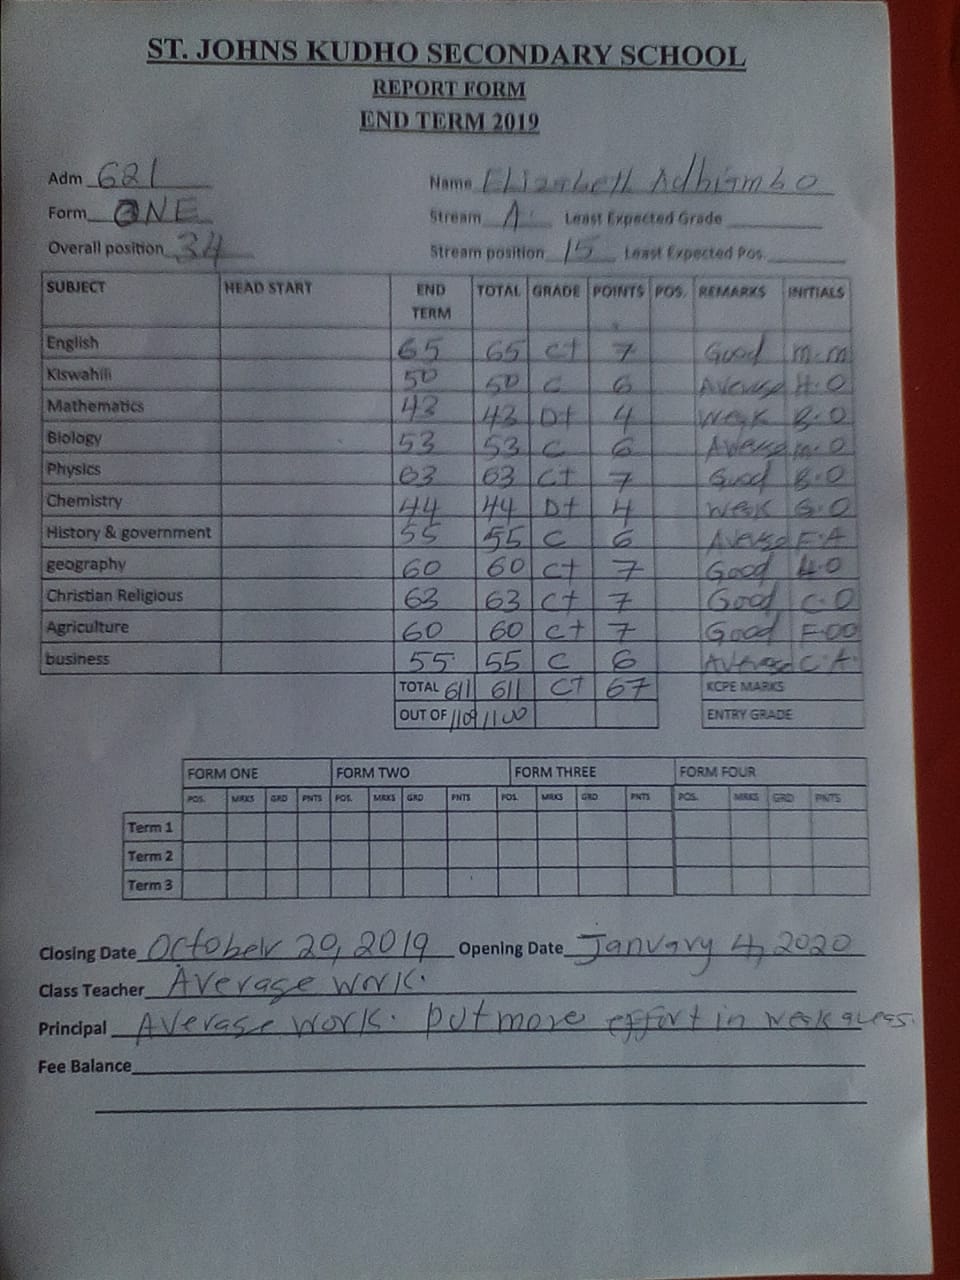 ST. JOHNS KUDHO SECONDARY SCHOOL
REPORT FORM
END TERM 2019
Adm 621 Name Elizabeth Adhiambo
Form ONE Stream A Least Expected Grade
Overall position 34 Stream position 15 Least Expected Pos.
SUBJECT HEAD START END TERM TOTAL GRADE POINTS POS. REMARKS INITIALS
English 65 65 C+ 7 Good M.M
Kiswahili 50 50 C 6 Average H.O
Mathematics 43 43 D+ 4 Weak B.O
Biology 53 53 C 6 Average M.O
Physics 63 63 C+ 7 Good B.O
Chemistry 44 44 D+ 4 Weak G.O
History & government 55 55 C 6 Average F.A
geography 60 60 C+ 7 Good H.O
Christian Religious 63 63 C+ 7 Good C.O
Agriculture 60 60 C+ 7 Good F.OO
business 55 55 C 6 Average C.A.
TOTAL 611 611 C+ 67 KCPE MARKS
OUT OF 1100 1100 ENTRY GRADE
FORM ONE FORM TWO FORM THREE FORM FOUR
POS. MRKS GRD PNTS POS. MRKS GRD PNTS POS. MRKS GRD PNTS POS. MRKS GRD PNTS
Term 1
Term 2
Term 3
Closing Date October 29, 2019 Opening Date January 4, 2020
Class Teacher Average work.
Principal Average work. Put more effort in weak areas.
Fee Balance